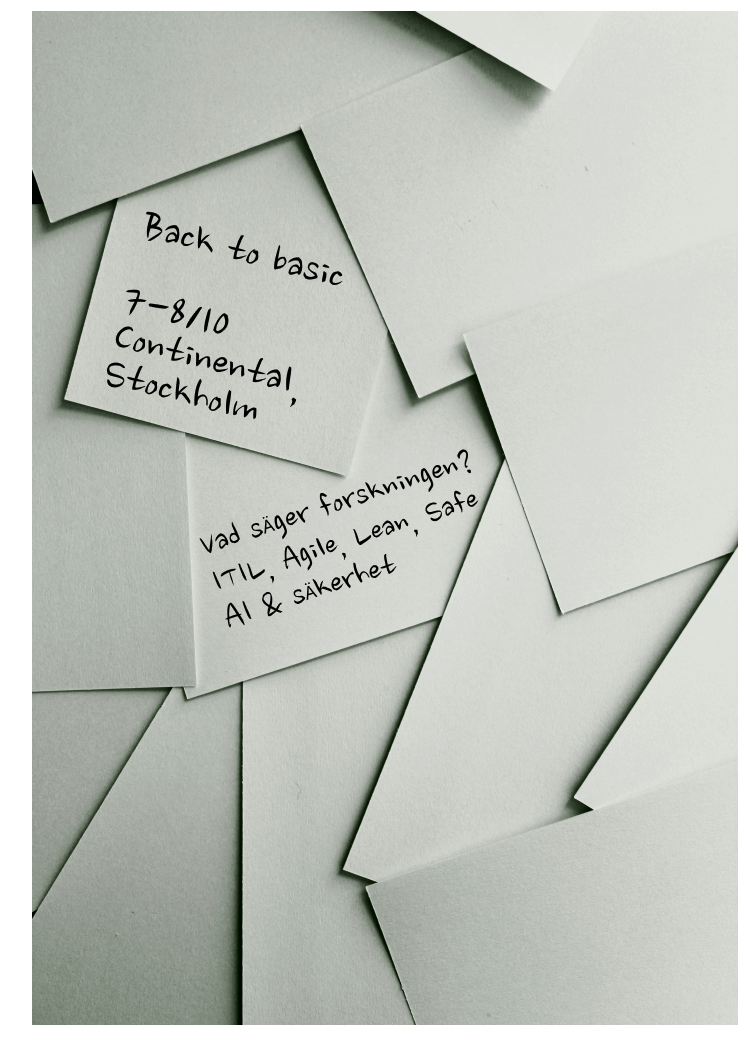 Back to basic
7-8/10
Continental,
Stockholm
Vad säger forskningen?
ITIL, Agile, Lean, Safe
AI & säkerhet